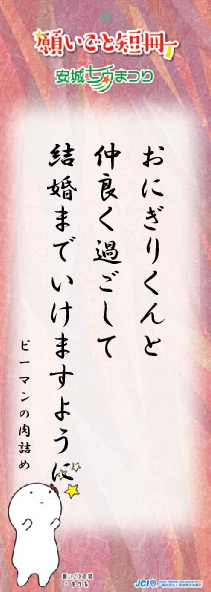 願いごと短冊
安城七夕まつり
おにぎりくんと
仲良く過ごして
結婚までいけますように
ピーマンの肉詰め
願いごと妖精
きさる
JCI